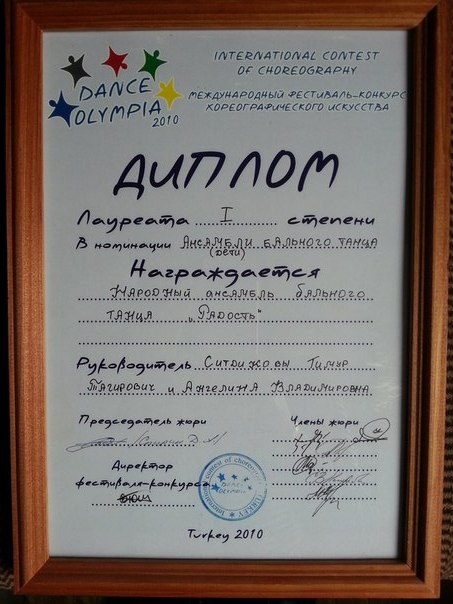 DANCE
OLYMPIA
2010
INTERNATIONAL CONTEST
OF CHOREOGRAPHY
МЕЖДУНАРОДНЫЙ ФЕСТИВАЛЬ-КОНКУРС
ХОРЕОГРАФИЧЕСКОГО ИСКУССТВА
ДИПЛОМ
Лауреата I степени
В номинации Ансамбли бального танца
(дети)
Награждается
Народный ансамбль бального
танца „Радость"
Руководитель Ситдиковы Тимур
Тагирович и Ангелина Владимировна
Председатель жюри
Члены жюри
Директор
фестиваля-конкурса
International contest of choreography
DANCE
OLYMPIA
TURKEY
Turkey 2010